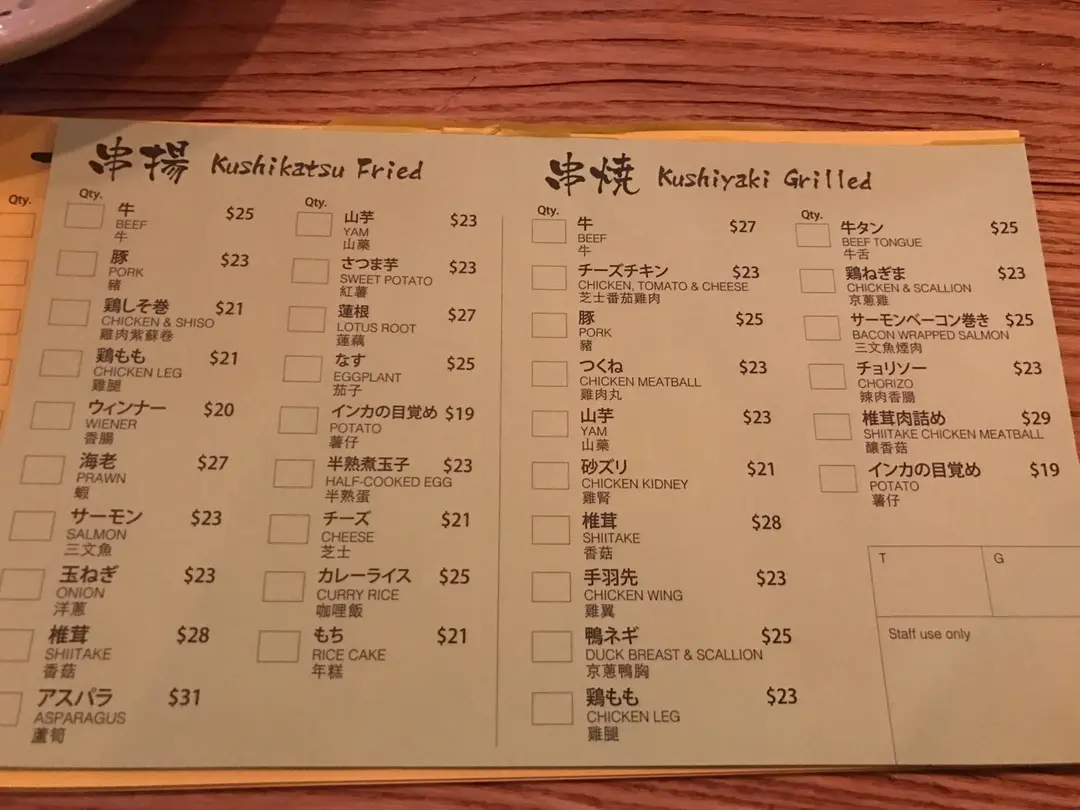 Qty.
串揚 Kushikatsu Fried
Qty.
牛 $25
BEEF
牛
豚 $23
PORK
豬
鶏しそ巻 $21
CHICKEN & SHISO
雞肉紫蘇卷
鶏もも $21
CHICKEN LEG
雞腿
ウィンナー $20
WIENER
香腸
海老 $27
PRAWN
蝦
サーモン $23
SALMON
三文魚
玉ねぎ $23
ONION
洋蔥
椎茸 $28
SHIITAKE
香菇
アスパラ $31
ASPARAGUS
蘆筍
Qty.
山芋 $23
YAM
山藥
さつま芋 $23
SWEET POTATO
紅薯
蓮根 $27
LOTUS ROOT
蓮藕
なす $25
EGGPLANT
茄子
インカの目覚め $19
POTATO
薯仔
半熟煮玉子 $23
HALF-COOKED EGG
半熟蛋
チーズ $21
CHEESE
芝士
カレーライス $25
CURRY RICE
咖哩飯
もち $21
RICE CAKE
年糕
串焼 Kushiyaki Grilled
Qty.
牛 $27
BEEF
牛
チーズチキン $23
CHICKEN, TOMATO & CHEESE
芝士番茄雞肉
豚 $25
PORK
豬
つくね $23
CHICKEN MEATBALL
雞肉丸
山芋 $23
YAM
山藥
砂ズリ $21
CHICKEN KIDNEY
雞腎
椎茸 $28
SHIITAKE
香菇
手羽先 $23
CHICKEN WING
雞翼
鴨ネギ $25
DUCK BREAST & SCALLION
京蔥鴨胸
鶏もも $23
CHICKEN LEG
雞腿
Qty.
牛タン $25
BEEF TONGUE
牛舌
鶏ねぎま $23
CHICKEN & SCALLION
京蔥雞
サーモンベーコン巻き $25
BACON WRAPPED SALMON
三文魚煙肉
チョリソー $23
CHORIZO
辣肉香腸
椎茸肉詰め $29
SHIITAKE CHICKEN MEATBALL
釀香菇
インカの目覚め $19
POTATO
薯仔
T
G
Staff use only